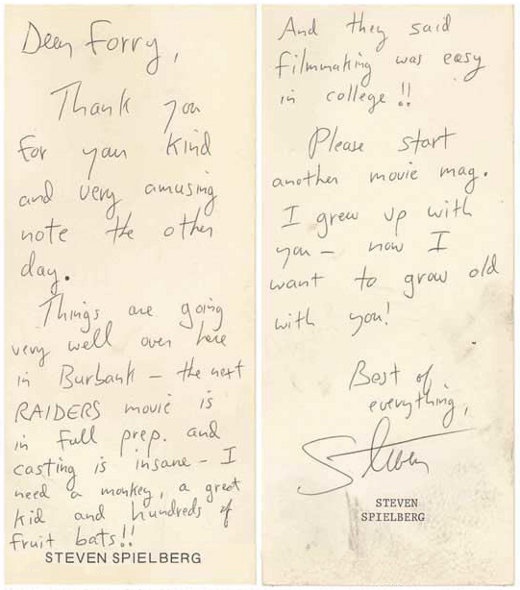 Dear Forry,
Thank you
for your kind
and very amusing
note the other
day.
Things are going
very well over here
in Burbank – the next
RAIDERS movie is
in full prep. and
casting is insane – I
need a monkey, a great
kid and hundreds of
fruit bats!!
STEVEN SPIELBERG
And they said
filmmaking was easy
in college!!
Please start
another movie mag.
I grew up with
you – now I
want to grow old
with you!
Best of
everything,
Steven
STEVEN
SPIELBERG